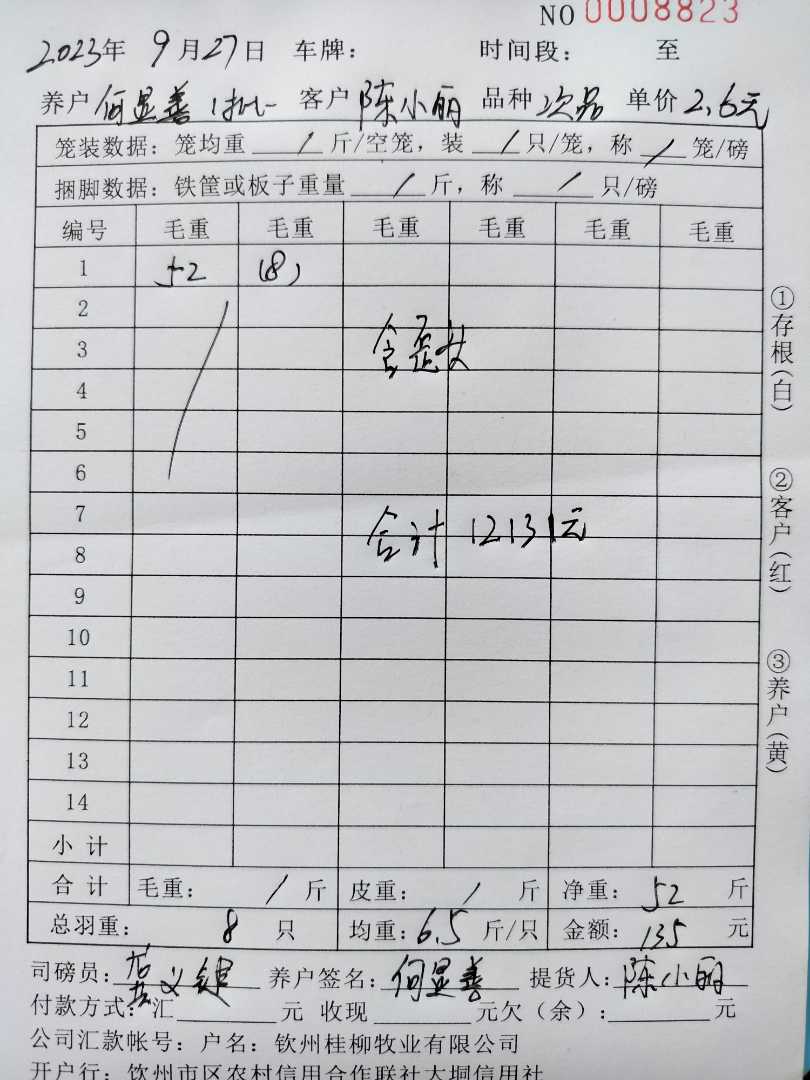 NO 0008823
2023年 9月27日 车牌： 时间段： 至
养户 何显善 1批 客户 陈小丽 品种 次品 单价 2.6元
笼装数据：笼均重 / 斤/空笼，装 / 只/笼，称 / 笼/磅
捆脚数据：铁筐或板子重量 / 斤，称 / 只/磅
编号 毛重 毛重 毛重 毛重 毛重 毛重
1 52 (8)
2
3
4
5
6
7
合计 12131元
8
9
10
11
12
13
14
小计
合计 毛重： / 斤 皮重： / 斤 净重： 52 斤
总羽重： 8 只 均重：6.5 斤/只 金额： 135 元
司磅员： 养户签名：何显善 提货人：陈小丽
付款方式：汇 元 收现 元欠（余）： 元
公司汇款帐号：户名：钦州桂柳牧业有限公司
开户行：钦州市区农村信用合作联社大垌信用社
①存根（白）
②客户（红）
③养户（黄）